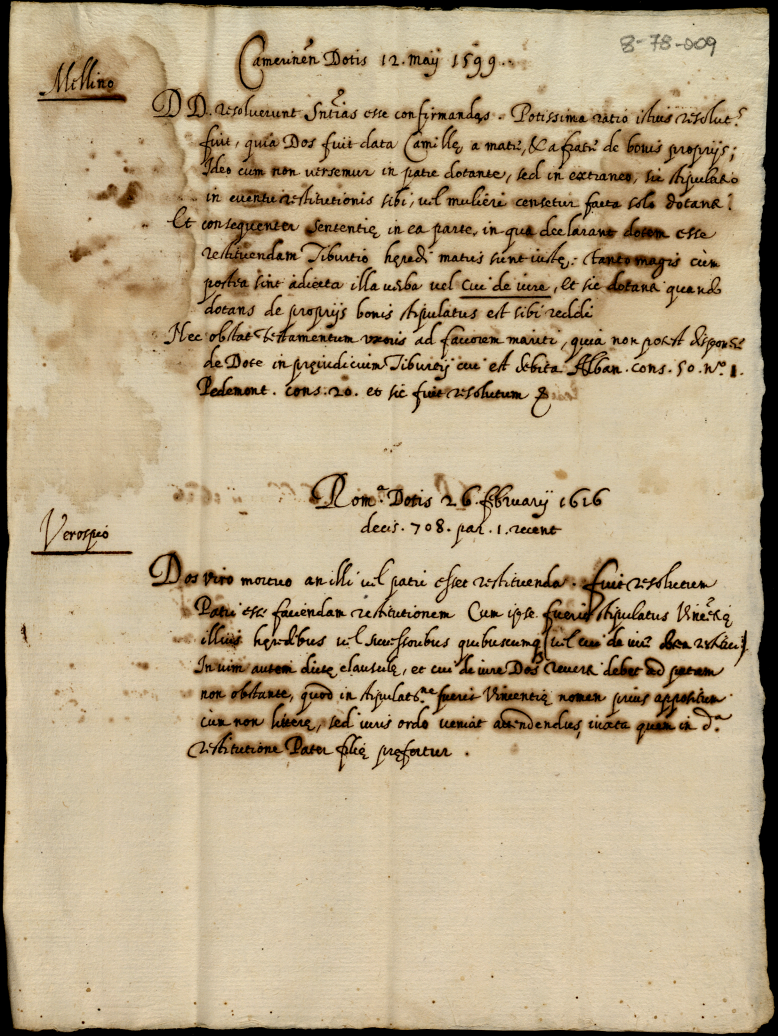 8-78-009
Camerinen Dotis 12. maij 1599.
Mellino
DD. resolverunt Sntias esse confirmandas. Potissima ratio istius resolut.s
fuit, quia Dos fuit data Camillę, a matre, & a fratre de bonis proprijs;
Ideo cum non versemur in patre dotante, sed in extraneo, sic stipulatio
in eventu restitutionis sibi, vel mulieri censetur facta solo dotanti.
Et consequenter sententię in ea parte, in qua declarant dotem esse
restituendam Tiburtio hęredi matris sunt iustę: tanto magis cum
postea sint adiecta illa verba vel cui de iure, et sic dotans quando
dotans de proprijs bonis stipulatus est sibi reddi
Nec obstat testamentum uxoris ad favorem mariti, quia non potest disponere
de Dote in pręiudicium Tiburtij cui est debita Alban. cons. 50. no. 1.
Pedemont. cons. 20. et sic fuit resolutum &
Rom.a Dotis 26. februarij 1616
decis. 708. par. 1. recent
Verospio
Dos viro mortuo an illi vel patri esset restituenda. fuit resolutum
Patri esse faciendam restitutionem Cum ipse fuerit stipulatus Vincentię
illius hęredibus vel successoribus quibuscumq vel cui de iure
In vim autem dictę clausulę, et cui de iure Dos revera debet ad patrem
non obstante, quod in stipulatne fuerit Vincentię nomen prius appositum
cum non litterę, sed iuris ordo veniat attendendus, iuxta quem in d.a
restitutione Pater filię pręfertur.